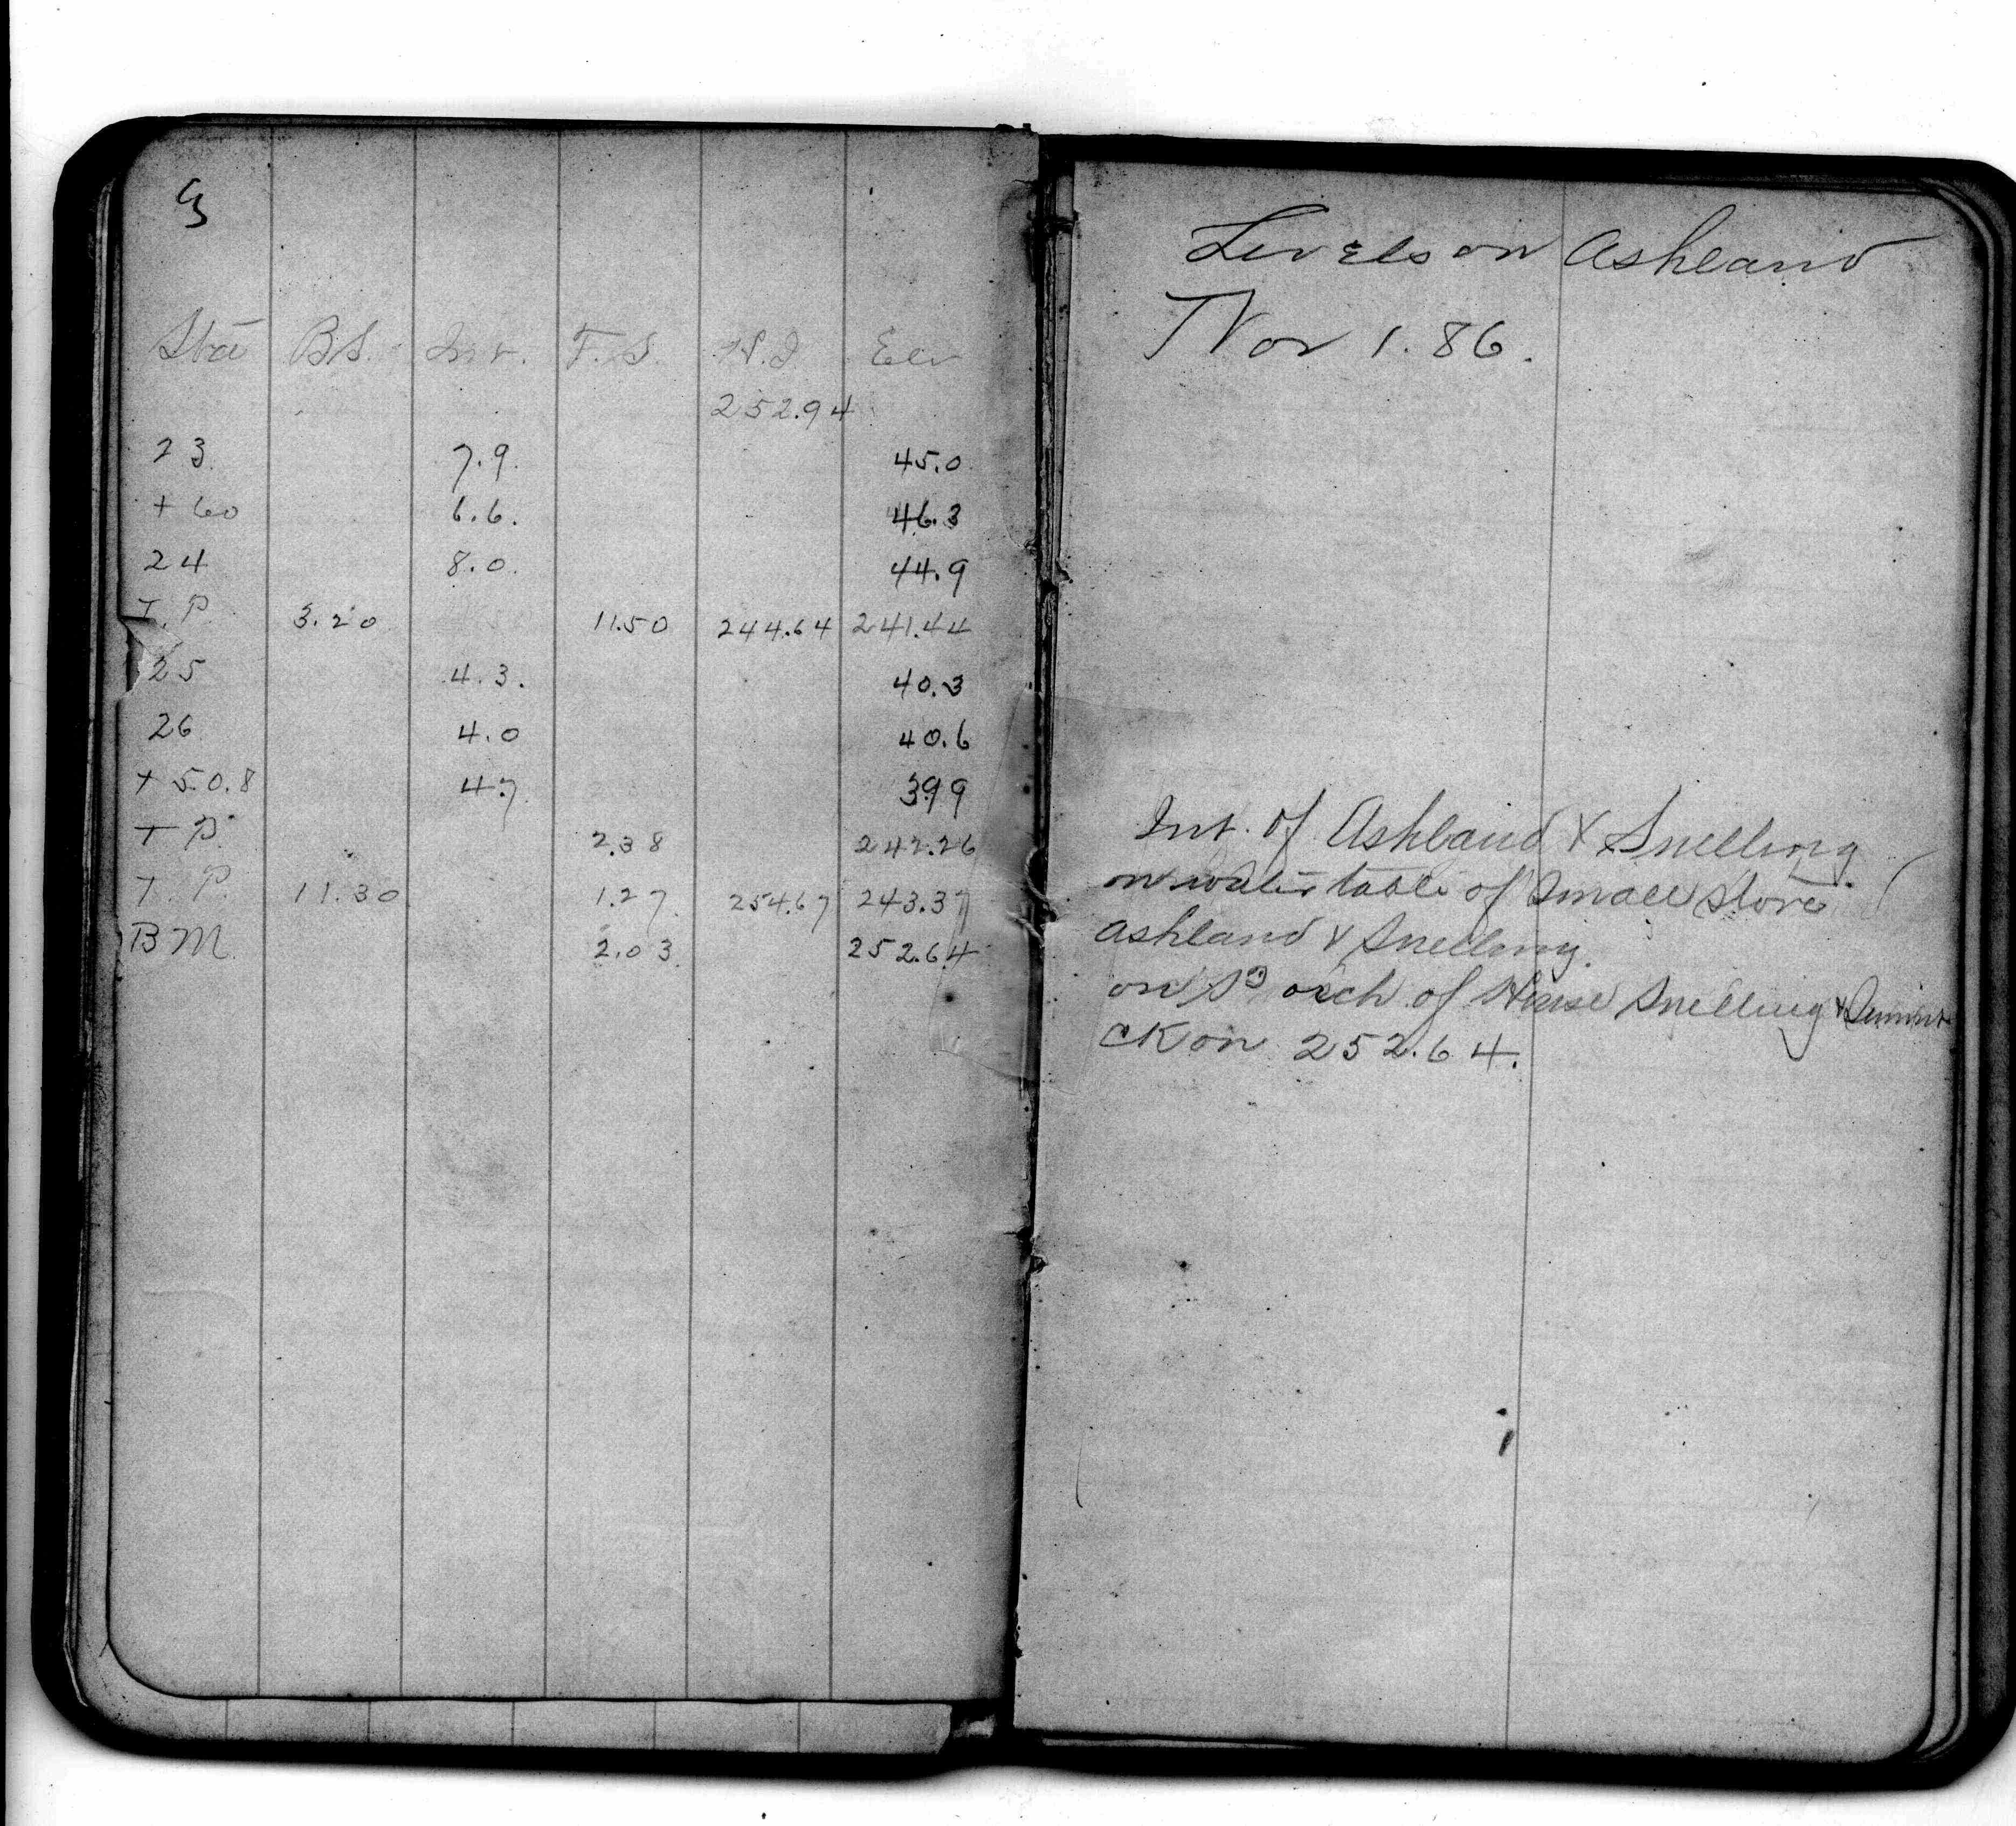 3
Sta B.S. Int. F.S. H.I. Elev
252.94
23 7.9 45.0
+60 6.6. 46.3
24 8.0. 44.9
T.P. 3.20 11.50 244.64 241.44
25 4.3. 40.3
26 4.0 40.6
+50.8 4.7 39.9
T.P. 2.38 242.26
T.P. 11.30 1.27 254.67 243.37
B M. 2.03 252.64
Levels on Ashland
Nov 1. 86.
Int. of Ashland & Snelling
on water table of Small store
Ashland & Snelling.
on of House Snelling & Summit
CK on 252.64.